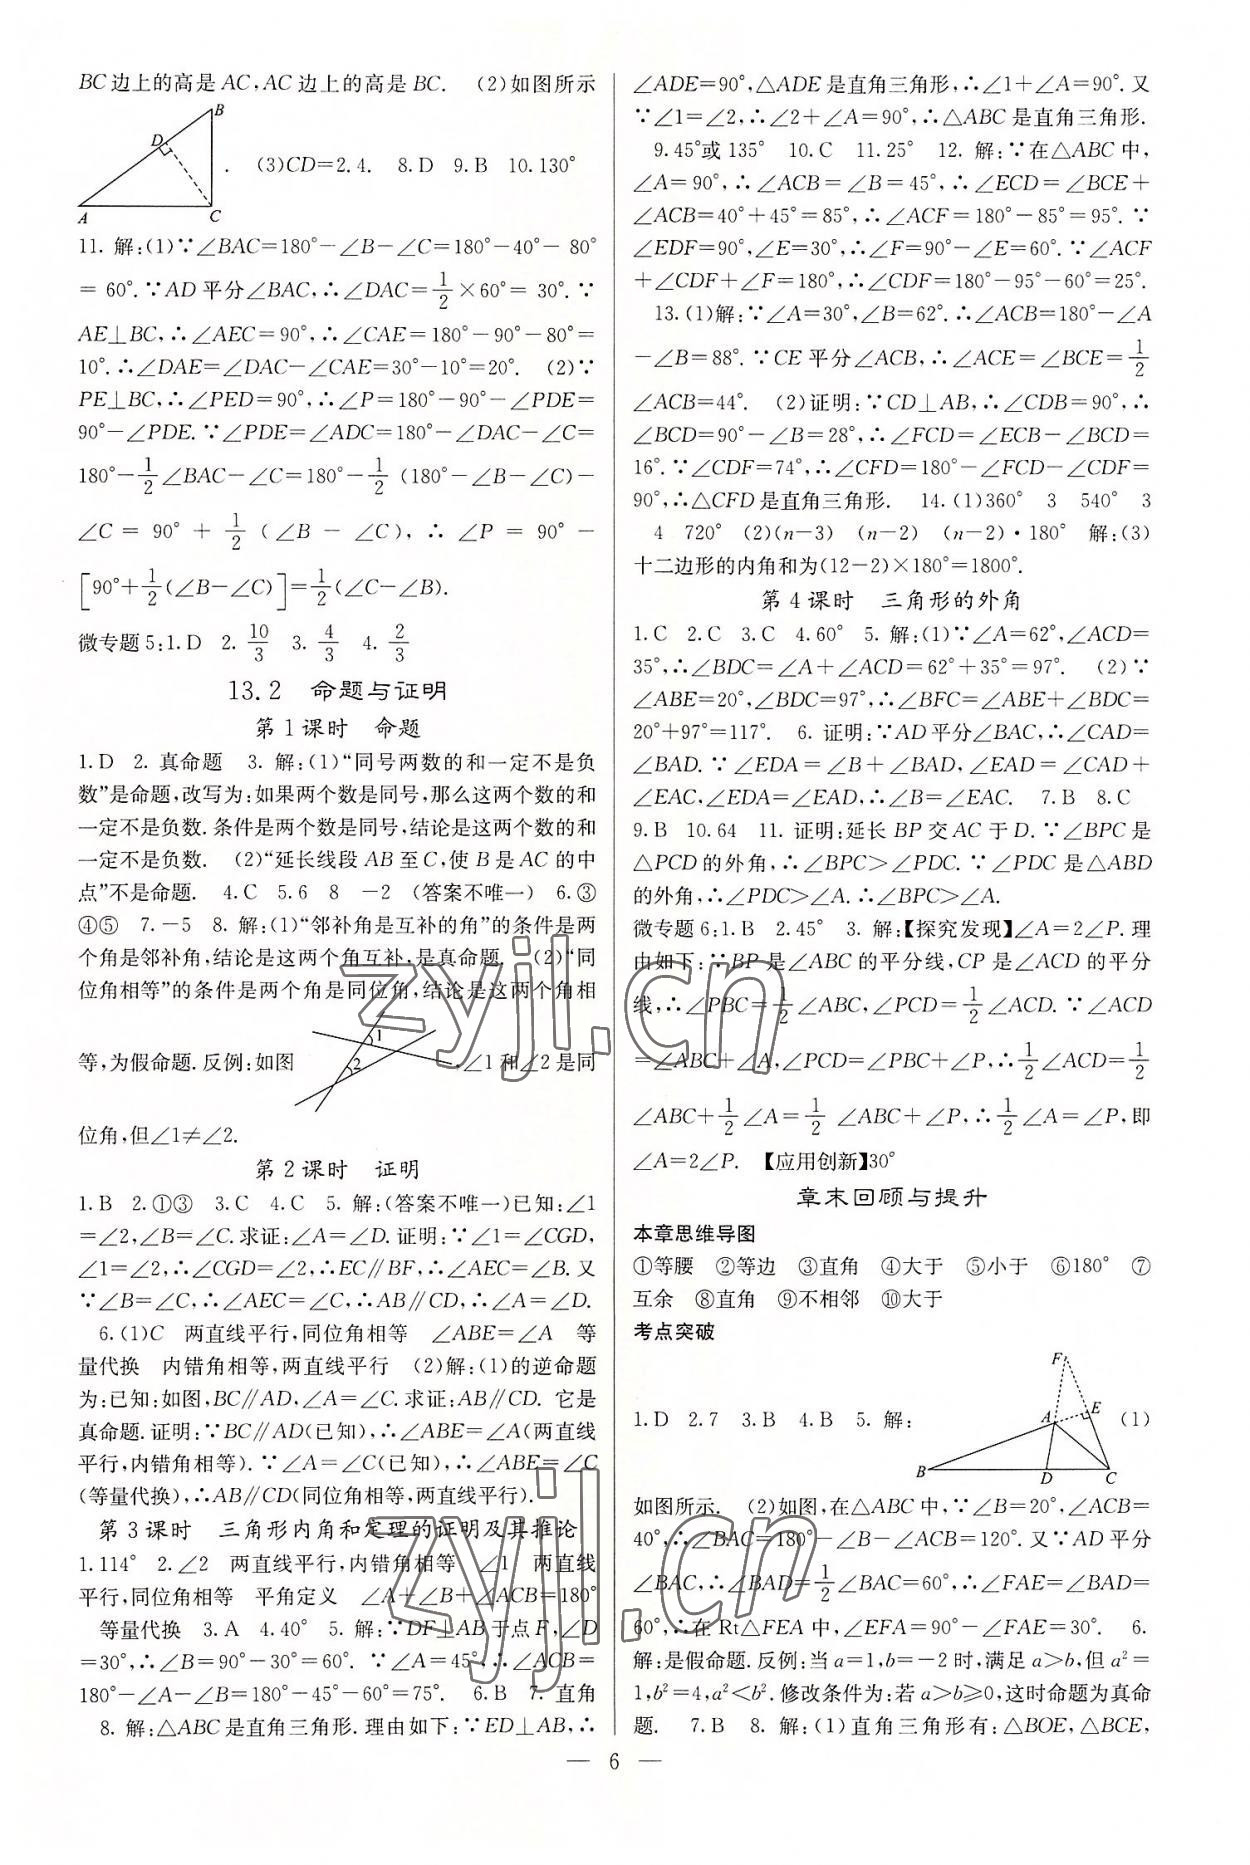 BC边上的高是AC,AC边上的高是BC. (2)如图所示
B
D
A
C
. (3)CD=2.4. 8.D 9.B 10.130°
11. 解:(1)∵∠BAC=180°-∠B-∠C=180°-40°- 80°
= 60°.∵AD平分∠BAC,∴∠DAC=1/2×60°= 30°.∵
AE⊥BC,∴∠AEC=90°,∴∠CAE=180°-90°-80°=
10°.∴∠DAE=∠DAC-∠CAE=30°-10°=20°. (2)∵
PE⊥BC,∴∠PED=90°,∴∠P=180°-90°-∠PDE=
90°-∠PDE.∵∠PDE=∠ADC=180°-∠DAC-∠C=
180°-1/2∠BAC-∠C=180°-1/2(180°-∠B-∠C)-
∠C = 90° + 1/2(∠B - ∠C), ∴ ∠P = 90° -
[90°+1/2(∠B-∠C)]=1/2(∠C-∠B).
微专题5:1.D 2. 10/3 3. 4/3 4. 2/3
13.2 命题与证明
第1课时 命题
1.D 2. 真命题 3. 解:(1)“同号两数的和一定不是负
数”是命题,改写为:如果两个数是同号,那么这两个数的和
一定不是负数.条件是两个数是同号,结论是这两个数的和
一定不是负数. (2)“延长线段AB至C,使B是AC的中
点”不是命题. 4.C 5.6 8 -2 (答案不唯一) 6.③
④⑤ 7.-5 8. 解:(1)“邻补角是互补的角”的条件是两
个角是邻补角,结论是这两个角互补,是真命题. (2)“同
位角相等”的条件是两个角是同位角,结论是这两个角相
等,为假命题.反例:如图
1
2
,∠1和∠2是同
位角,但∠1≠∠2.
第2课时 证明
1.B 2.①③ 3.C 4.C 5. 解:(答案不唯一)已知:∠1
=∠2,∠B=∠C.求证:∠A=∠D.证明:∵∠1=∠CGD,
∠1=∠2,∴∠CGD=∠2,∴EC∥BF,∴∠AEC=∠B.又
∵∠B=∠C,∴∠AEC=∠C,∴AB∥CD,∴∠A=∠D.
6.(1)C 两直线平行,同位角相等 ∠ABE=∠A 等
量代换 内错角相等,两直线平行 (2)解:(1)的逆命题
为:已知:如图,BC∥AD,∠A=∠C.求证:AB∥CD. 它是
真命题.证明:∵BC∥AD(已知),∴∠ABE=∠A(两直线
平行,内错角相等).∵∠A=∠C(已知),∴∠ABE=∠C
(等量代换),∴AB∥CD(同位角相等,两直线平行).
第3课时 三角形内角和定理的证明及其推论
1.114° 2.∠2 两直线平行,内错角相等 ∠1 两直线
平行,同位角相等 平角定义 ∠A+∠B+∠ACB=180°
等量代换 3.A 4.40° 5. 解:∵DF⊥AB于点F,∠D
=30°,∴∠B=90°-30°=60°. ∵∠A=45°,∴∠ACB=
180°-∠A-∠B=180°-45°-60°=75°. 6.B 7. 直角
8. 解:△ABC是直角三角形.理由如下:∵ED⊥AB,∴
∠ADE=90°,△ADE是直角三角形,∴∠1+∠A=90°.又
∵∠1=∠2,∴∠2+∠A=90°,∴△ABC是直角三角形.
9.45°或135° 10.C 11.25° 12. 解:∵在△ABC中,
∠A=90°,∴∠ACB=∠B=45°,∴∠ECD=∠BCE+
∠ACB=40°+45°=85°,∴∠ACF=180°-85°=95°. ∵
∠EDF=90°,∠E=30°,∴∠F=90°-∠E=60°.∵∠ACF
+∠CDF+∠F=180°,∴∠CDF=180°-95°-60°=25°.
13.(1)解:∵∠A=30°,∠B=62°.∴∠ACB=180°-∠A
-∠B=88°.∵CE平分∠ACB,∴∠ACE=∠BCE=1/2
∠ACB=44°. (2)证明:∵CD⊥AB,∴∠CDB=90°,∴
∠BCD=90°-∠B=28°,∴∠FCD=∠ECB-∠BCD=
16°.∵∠CDF=74°,∴∠CFD=180°-∠FCD-∠CDF=
90°,∴△CFD是直角三角形. 14.(1)360° 3 540° 3
4 720° (2)(n-3) (n-2) (n-2)·180° 解:(3)
十二边形的内角和为(12-2)×180°=1800°.
第4课时 三角形的外角
1.C 2.C 3.C 4.60° 5. 解:(1)∵∠A=62°,∠ACD=
35°,∴∠BDC=∠A+∠ACD=62°+35°=97°. (2)∵
∠ABE=20°,∠BDC=97°,∴∠BFC=∠ABE+∠BDC=
20°+97°=117°. 6. 证明:∵AD平分∠BAC,∴∠CAD=
∠BAD.∵∠EDA=∠B+∠BAD,∠EAD=∠CAD+
∠EAC,∠EDA=∠EAD,∴∠B=∠EAC. 7.B 8.C
9.B 10.64 11. 证明:延长BP交AC于D.∵∠BPC是
△PCD的外角,∴∠BPC>∠PDC.∵∠PDC是△ABD
的外角,∴∠PDC>∠A.∴∠BPC>∠A.
微专题6:1.B 2.45° 3. 解:【探究发现】∠A=2∠P.理
由如下:∵BP是∠ABC的平分线,CP是∠ACD的平分
线,∴∠PBC=1/2∠ABC,∠PCD=1/2∠ACD.∵∠ACD
=∠ABC+∠A,∠PCD=∠PBC+∠P,∴1/2∠ACD=1/2
∠ABC+1/2∠A=1/2∠ABC+∠P,∴1/2∠A=∠P,即
∠A=2∠P. 【应用创新】30°
章末回顾与提升
本章思维导图
①等腰 ②等边 ③直角 ④大于 ⑤小于 ⑥180° ⑦
互余 ⑧直角 ⑨不相邻 ⑩大于
考点突破
1.D 2.7 3.B 4.B 5. 解:
F
A
E
B
D
C
(1)
如图所示. (2)如图,在△ABC中,∵∠B=20°,∠ACB=
40°,∴∠BAC=180°-∠B-∠ACB=120°.又∵AD平分
∠BAC,∴∠BAD=1/2∠BAC=60°,∴∠FAE=∠BAD=
60°,∴在Rt△FEA中,∠EFA=90°-∠FAE=30°. 6.
解:是假命题.反例:当a=1,b=-2时,满足a>b,但a²=
1,b²=4,a²<b².修改条件为:若a>b≥0,这时命题为真命
题. 7.B 8. 解:(1)直角三角形有:△BOE,△BCE,
— 6 —
zyjl.cn
zyjl.cn